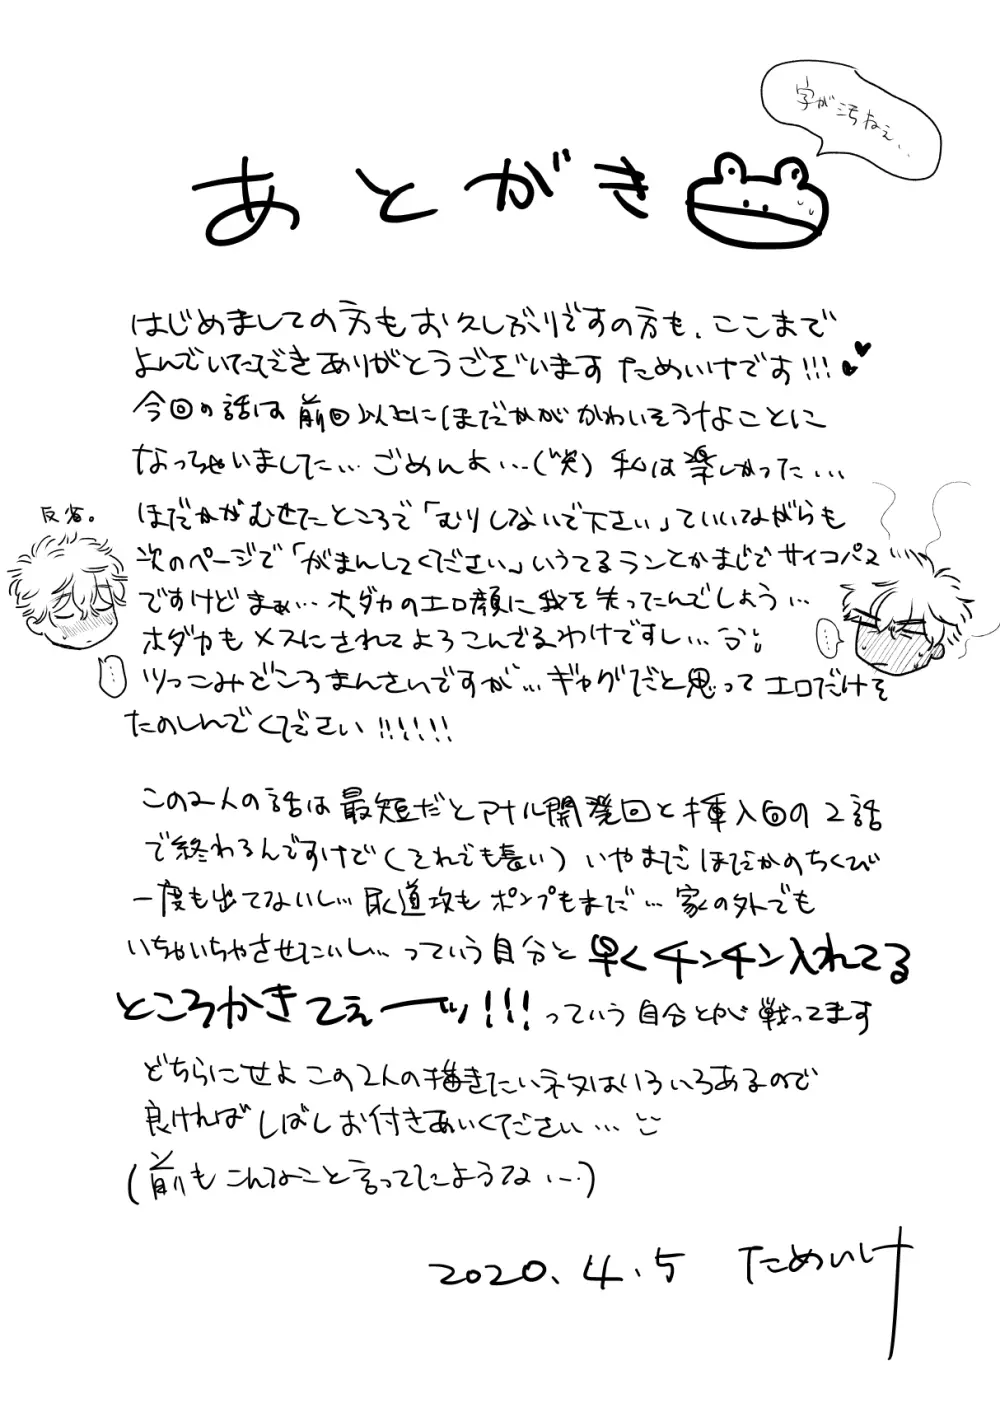 字が汚ねぇ…
あとがき
はじめましての方もお久しぶりですの方も、ここまで
よんでいただきありがとうございます ためいけです!!!
今回の話は前回以上にほだかがかわいそうなことに
なっちゃいました… ごめんよ… (笑) 私は楽しかった…
反省。
ほだかがむせたところで「むりしないで下さい」ていいながらも
次のページで「がまんしてください」いうてるランとかまじでサイコパス
ですけど まぁ… ホダカのエロ顔に我を失ってたんでしょう…
ホダカもメスにされてよろこんでるわけですし…
ツっこみどころまんさいですが… ギャグだと思って エロだけを
たのしんでください!!!!!!
この2人の話は最短だとアナル開発回と挿入回の2話
で終わるんですけで(それでも長い) いやまだほだかのちくび
一度も出てないし… 尿道攻もポンプもまだ… 家の外でも
いちゃいちゃさせたいし… っていう自分と 早くチンチン入れてる
ところかきてぇーーッ!!! っていう自分とが戦ってます
どちらにせよ この2人の描きたいネタはいろいろあるので
良ければしばしお付きあいください…
(前もこんなこと言ってたような…)
2020.4.5 ためいけ